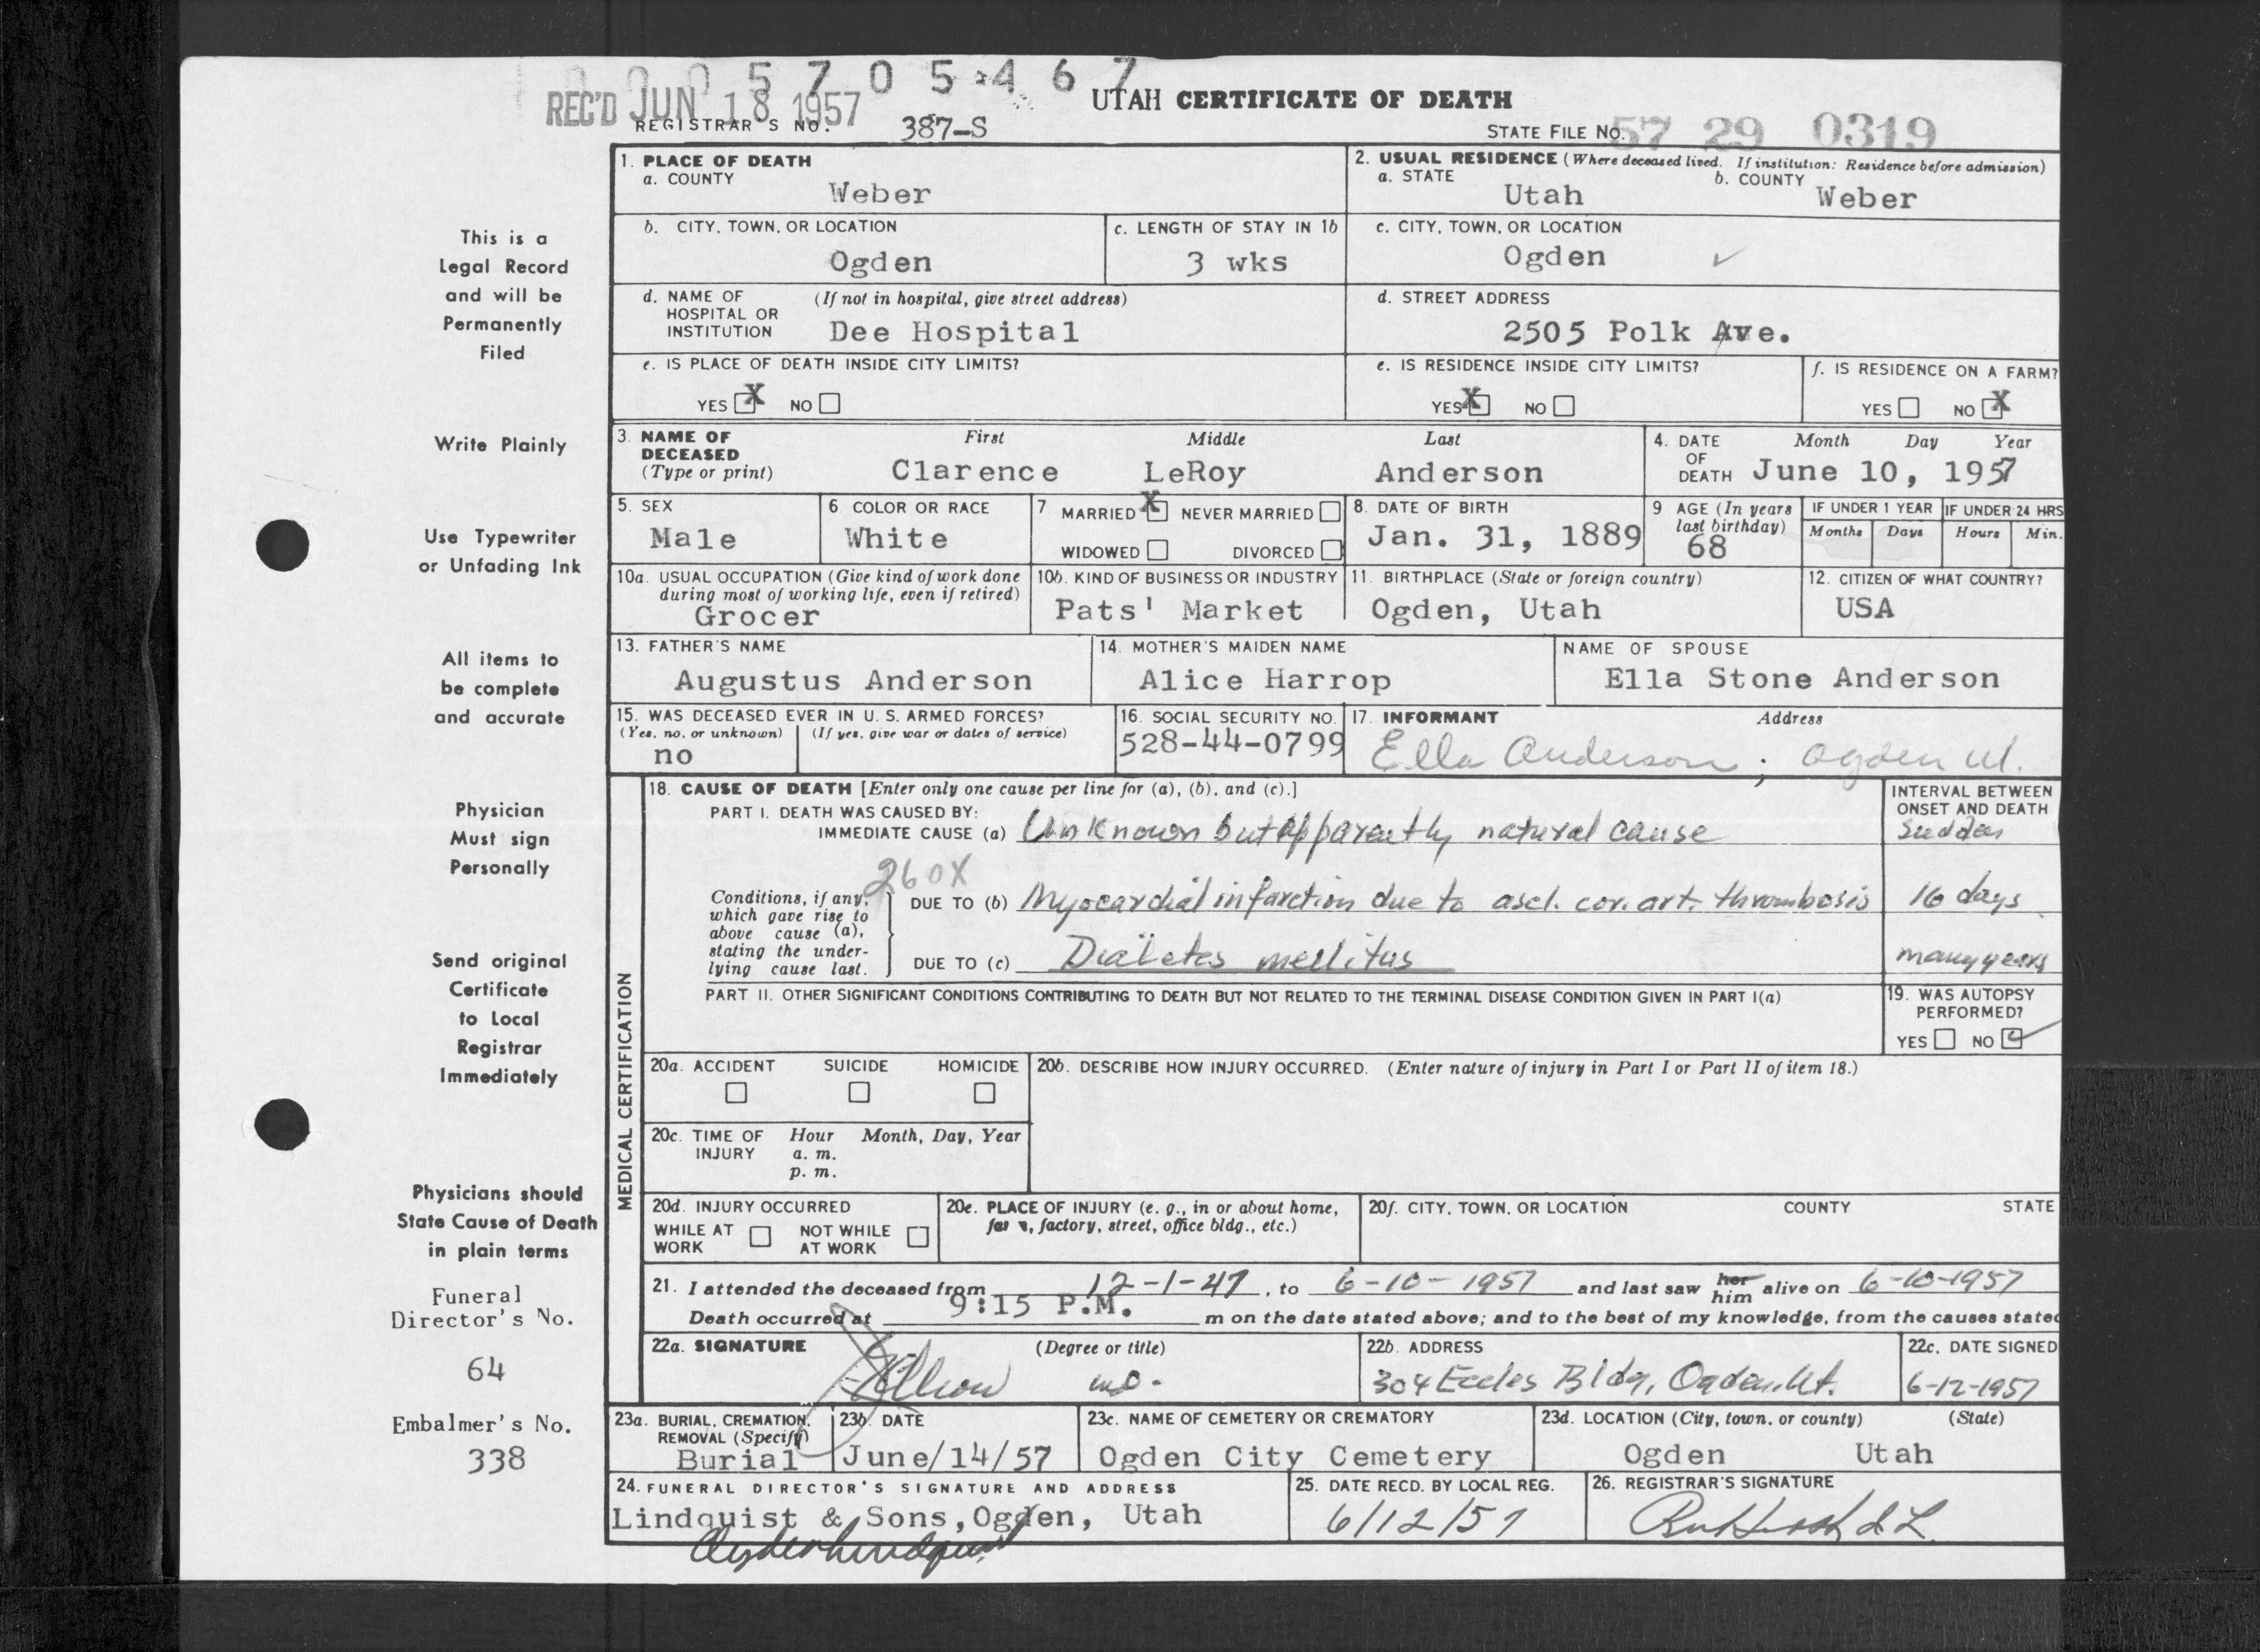 0 0 0 5 7 0 5 4 6 7
REC'D JUN 18 1957
UTAH CERTIFICATE OF DEATH
REGISTRAR'S NO. 387-S
STATE FILE NO. 57 29 0319
This is a
Legal Record
and will be
Permanently
Filed
Write Plainly
Use Typewriter
or Unfading Ink
All items to
be complete
and accurate
Physician
Must sign
Personally
Send original
Certificate
to Local
Registrar
Immediately
Physicians should
State Cause of Death
in plain terms
Funeral
Director's No.
64
Embalmer's No.
338
1. PLACE OF DEATH
a. COUNTY
Weber
2. USUAL RESIDENCE (Where deceased lived. If institution: Residence before admission)
a. STATE Utah b. COUNTY Weber
b. CITY, TOWN, OR LOCATION
Ogden
c. LENGTH OF STAY IN 1b
3 wks
c. CITY, TOWN, OR LOCATION
Ogden
d. NAME OF HOSPITAL OR INSTITUTION (If not in hospital, give street address)
Dee Hospital
d. STREET ADDRESS
2505 Polk Ave.
e. IS PLACE OF DEATH INSIDE CITY LIMITS?
YES X NO
e. IS RESIDENCE INSIDE CITY LIMITS?
YES X NO
f. IS RESIDENCE ON A FARM?
YES NO X
3. NAME OF DECEASED (Type or print)
First Middle Last
Clarence LeRoy Anderson
4. DATE OF DEATH
Month Day Year
June 10, 1957
5. SEX
Male
6. COLOR OR RACE
White
7. MARRIED X NEVER MARRIED
WIDOWED DIVORCED
8. DATE OF BIRTH
Jan. 31, 1889
9 AGE (In years last birthday)
68
IF UNDER 1 YEAR
Months Days
IF UNDER 24 HRS
Hours Min.
10a. USUAL OCCUPATION (Give kind of work done during most of working life, even if retired)
Grocer
10b. KIND OF BUSINESS OR INDUSTRY
Pats' Market
11. BIRTHPLACE (State or foreign country)
Ogden, Utah
12. CITIZEN OF WHAT COUNTRY?
USA
13. FATHER'S NAME
Augustus Anderson
14. MOTHER'S MAIDEN NAME
Alice Harrop
NAME OF SPOUSE
Ella Stone Anderson
15. WAS DECEASED EVER IN U. S. ARMED FORCES?
(Yes, no, or unknown) (If yes, give war or dates of service)
no
16. SOCIAL SECURITY NO.
528-44-0799
17. INFORMANT Address
Ella Anderson; Ogden Ut.
MEDICAL CERTIFICATION
18. CAUSE OF DEATH [Enter only one cause per line for (a), (b), and (c).]
INTERVAL BETWEEN ONSET AND DEATH
PART I. DEATH WAS CAUSED BY:
IMMEDIATE CAUSE (a) Unknown but apparently natural cause sudden
260X
Conditions, if any, which gave rise to above cause (a), stating the underlying cause last.
DUE TO (b) Myocardial infarction due to ascl. cor. art. thrombosis 16 days
DUE TO (c) Diabetes mellitus many years
PART II. OTHER SIGNIFICANT CONDITIONS CONTRIBUTING TO DEATH BUT NOT RELATED TO THE TERMINAL DISEASE CONDITION GIVEN IN PART I(a)
19. WAS AUTOPSY PERFORMED?
YES NO
20a. ACCIDENT SUICIDE HOMICIDE
20b. DESCRIBE HOW INJURY OCCURRED. (Enter nature of injury in Part I or Part II of item 18.)
20c. TIME OF INJURY Hour Month, Day, Year
a. m.
p. m.
20d. INJURY OCCURRED
WHILE AT WORK NOT WHILE AT WORK
20e. PLACE OF INJURY (e. g., in or about home, farm, factory, street, office bldg., etc.)
20f. CITY, TOWN, OR LOCATION COUNTY STATE
21. I attended the deceased from 12-1-47, to 6-10-1957 and last saw her him alive on 6-10-1957
Death occurred at 9:15 P.M. m on the date stated above; and to the best of my knowledge, from the causes stated
22a. SIGNATURE (Degree or title)
M.D.
22b. ADDRESS
304 Eccles Bldg, Ogden, Ut.
22c. DATE SIGNED
6-12-1957
23a. BURIAL, CREMATION, REMOVAL (Specify)
Burial
23b. DATE
June/14/57
23c. NAME OF CEMETERY OR CREMATORY
Ogden City Cemetery
23d. LOCATION (City, town, or county) (State)
Ogden Utah
24. FUNERAL DIRECTOR'S SIGNATURE AND ADDRESS
Lindquist & Sons, Ogden, Utah
25. DATE RECD. BY LOCAL REG.
6/12/57
26. REGISTRAR'S SIGNATURE